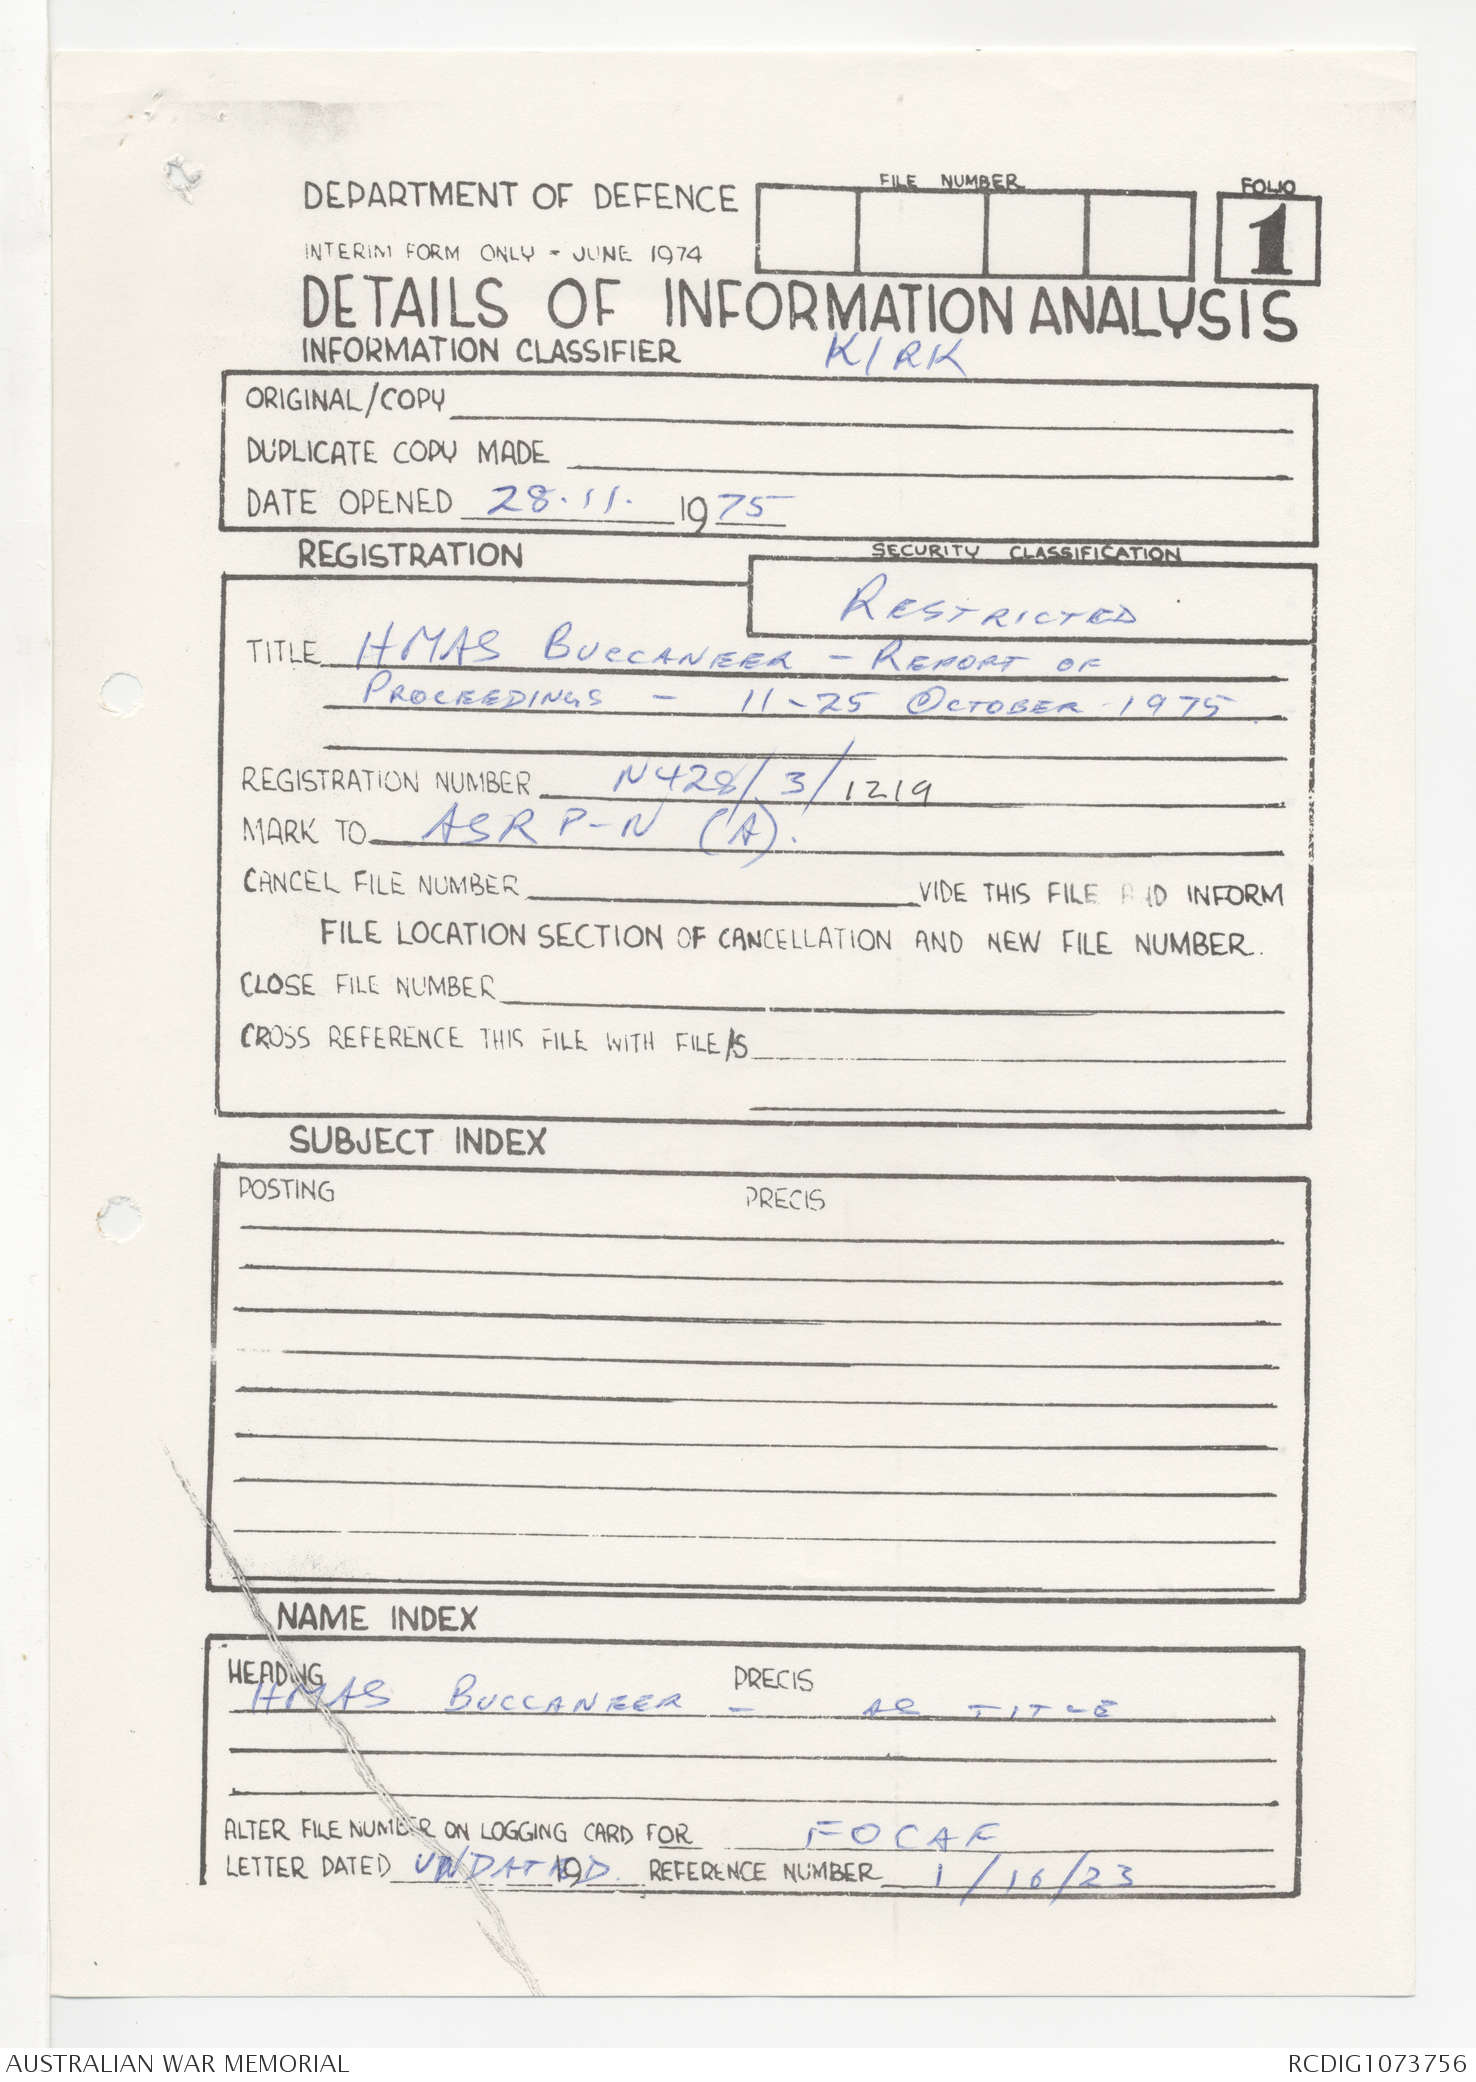 DEPARTMENT OF DEFENCE
FILE NUMBER
FOLIO
1
INTERIM FORM ONLY - JUNE 1974
DETAILS OF INFORMATION ANALYSIS
INFORMATION CLASSIFIER KIRK
ORIGINAL/COPY
DUPLICATE COPY MADE
DATE OPENED 28.11. 1975
REGISTRATION
SECURITY CLASSIFICATION
RESTRICTED
TITLE HMAS BUCCANEER - REPORT OF
PROCEEDINGS - 11-25 OCTOBER 1975
REGISTRATION NUMBER N428/3/1219
MARK TO ASR P-N (A).
CANCEL FILE NUMBER VIDE THIS FILE AND INFORM
FILE LOCATION SECTION OF CANCELLATION AND NEW FILE NUMBER.
CLOSE FILE NUMBER
CROSS REFERENCE THIS FILE WITH FILE/S
SUBJECT INDEX
POSTING PRECIS
NAME INDEX
HEADING PRECIS
HMAS BUCCANEER - AS TITLE
ALTER FILE NUMBER ON LOGGING CARD FOR FOCAF
LETTER DATED UNDATED 19 REFERENCE NUMBER 1/16/23
AUSTRALIAN WAR MEMORIAL
RCDIG1073756